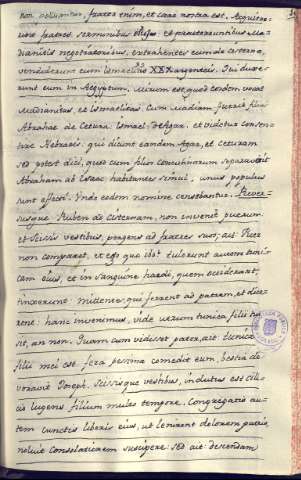 non polluantur, frater enim, et caro nostra est. Acquieve
runt fratres sermonibus illius, et praetereuntibus Ma
dianitis negotiatoribus, extrahentes eum de cisterna,
vendiderunt eum ismaelitis XXX argenteis. Qui duxe
runt eum in Aegyptum. Mirum est, quod eosdem vocat
Madianitas, et ismaelitas. Cum Madian fuerit filius
Abrahae de Cetura, ismael de Agar, et videtur consen
tire Hebraeis, qui dicunt eamdem Agar, et Ceturam
sed potest dici, quod cum filios concubinarum separaverit
Abraham ab isaac habitantes simul, unus populus
sunt effecti. Unde eodem nomine censebantur. Rever
susque Ruben ad cisternam, non invenit puerum
et scissis vestibus, pergens ad fratres suos, ait: Puer
non comparet, et ego quo ibo? tulerunt autem tuni
cam eius, et in sanguine haedi, quem occiderant,
tinxerunt mittentes, qui ferrent ad patrem, et dice
rent: hanc invenimus, vide utrum tunica filii tui
sit, an non. Quam cum vidisset pater, ait: tunica
filii mei est, fera pessima comedit eum, bestia de
voravit Joseph. Scissisque vestibus, indutus est cili
cio lugens filium multo tempore. Congregatis au
tem cunctis liberis eius, ut lenirent dolorem patris
noluit consolationem suscipere sed ait: descendam